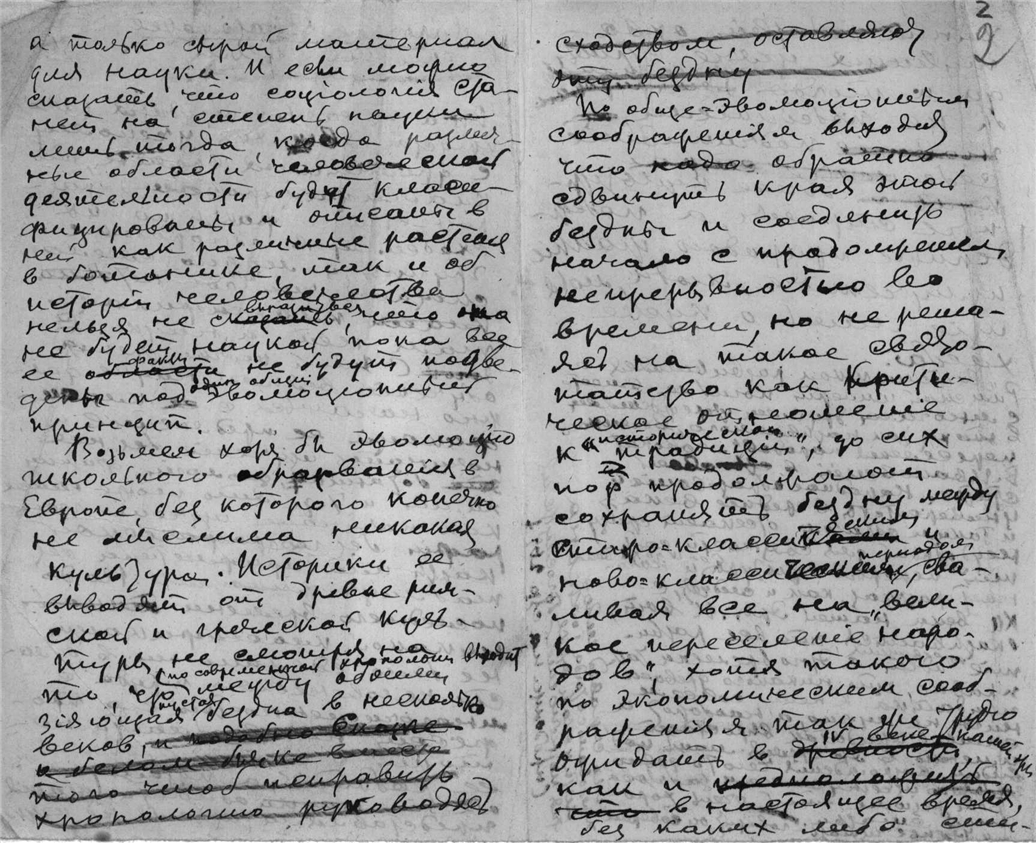 а только сырой материал
для науки. И если можно
сказать, что соціологія ста-
нет на степень науки
лишь тогда, когда различ-
ные области человеческой
деятельности будут класси-
фицированы и описаны в
ней как различные растения
в ботанике, так и об
исторіи человечества
нельзя не сказать, что она
не будет наукой пока все
ее факты не будут подве-
дены под один общий эволюціонный
принцип.
Возьмем хотя бы эволюцію
школьного образованія в
Европе, без которого конечно
не мыслима никакая
культура. Историки ее
выводят от древне рим-
ской и греческой куль-
туры не смотря на
то, что по современной хронологіи выходит
между обоими
зіяющая пустая бездна в несколько
веков, и
вместо
того чтоб исправить
хронологію руководясь
2
2
сходством, оставляют
эту бездну
По обще-эволюціонным
соображеніям выходит
что надо обратно
сдвинуть края этой
бездны и соединить
начало с продолжением
непрерывностью во
времени, но не реша-
ясь на такое свято-
татство как крити-
ческое отношеніе
к "исторической традиціи", до сих
пор продолжают
сохранять бездну между
старо-классическим и
ново-классическим періодом, сва-
ливая все на „вели-
кое переселеніе наро-
дов", хотя такого
по экономическим сооб-
раженіям так же трудно
ожидать в IV веке нашей эры
как и
в настоящее время,
без каких либо